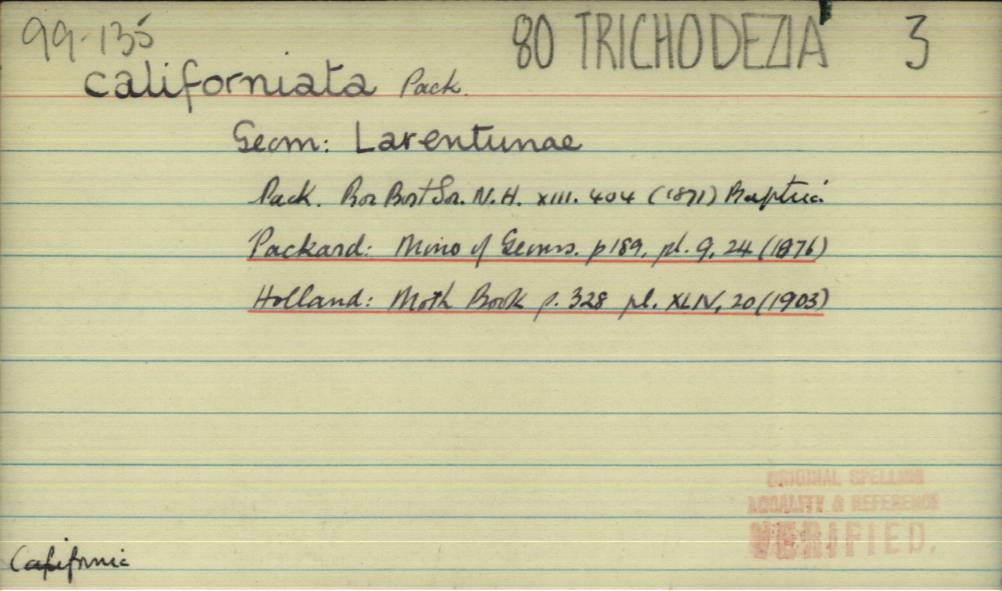 99-135
80 TRICHODEZIA 3
californiata Pack.
Geom: Larentiinae
Pack. Proc Bost Soc. N.H. XIII. 404 (1871) Baptria
Packard: Mono of Geoms. p189, pl. 9, 24 (1876)
Holland: Moth Book p. 328 pl. XLIV, 20 (1903)
ORIGINAL SPELLING
LOCALITY & REFERENCE
VERIFIED.
California